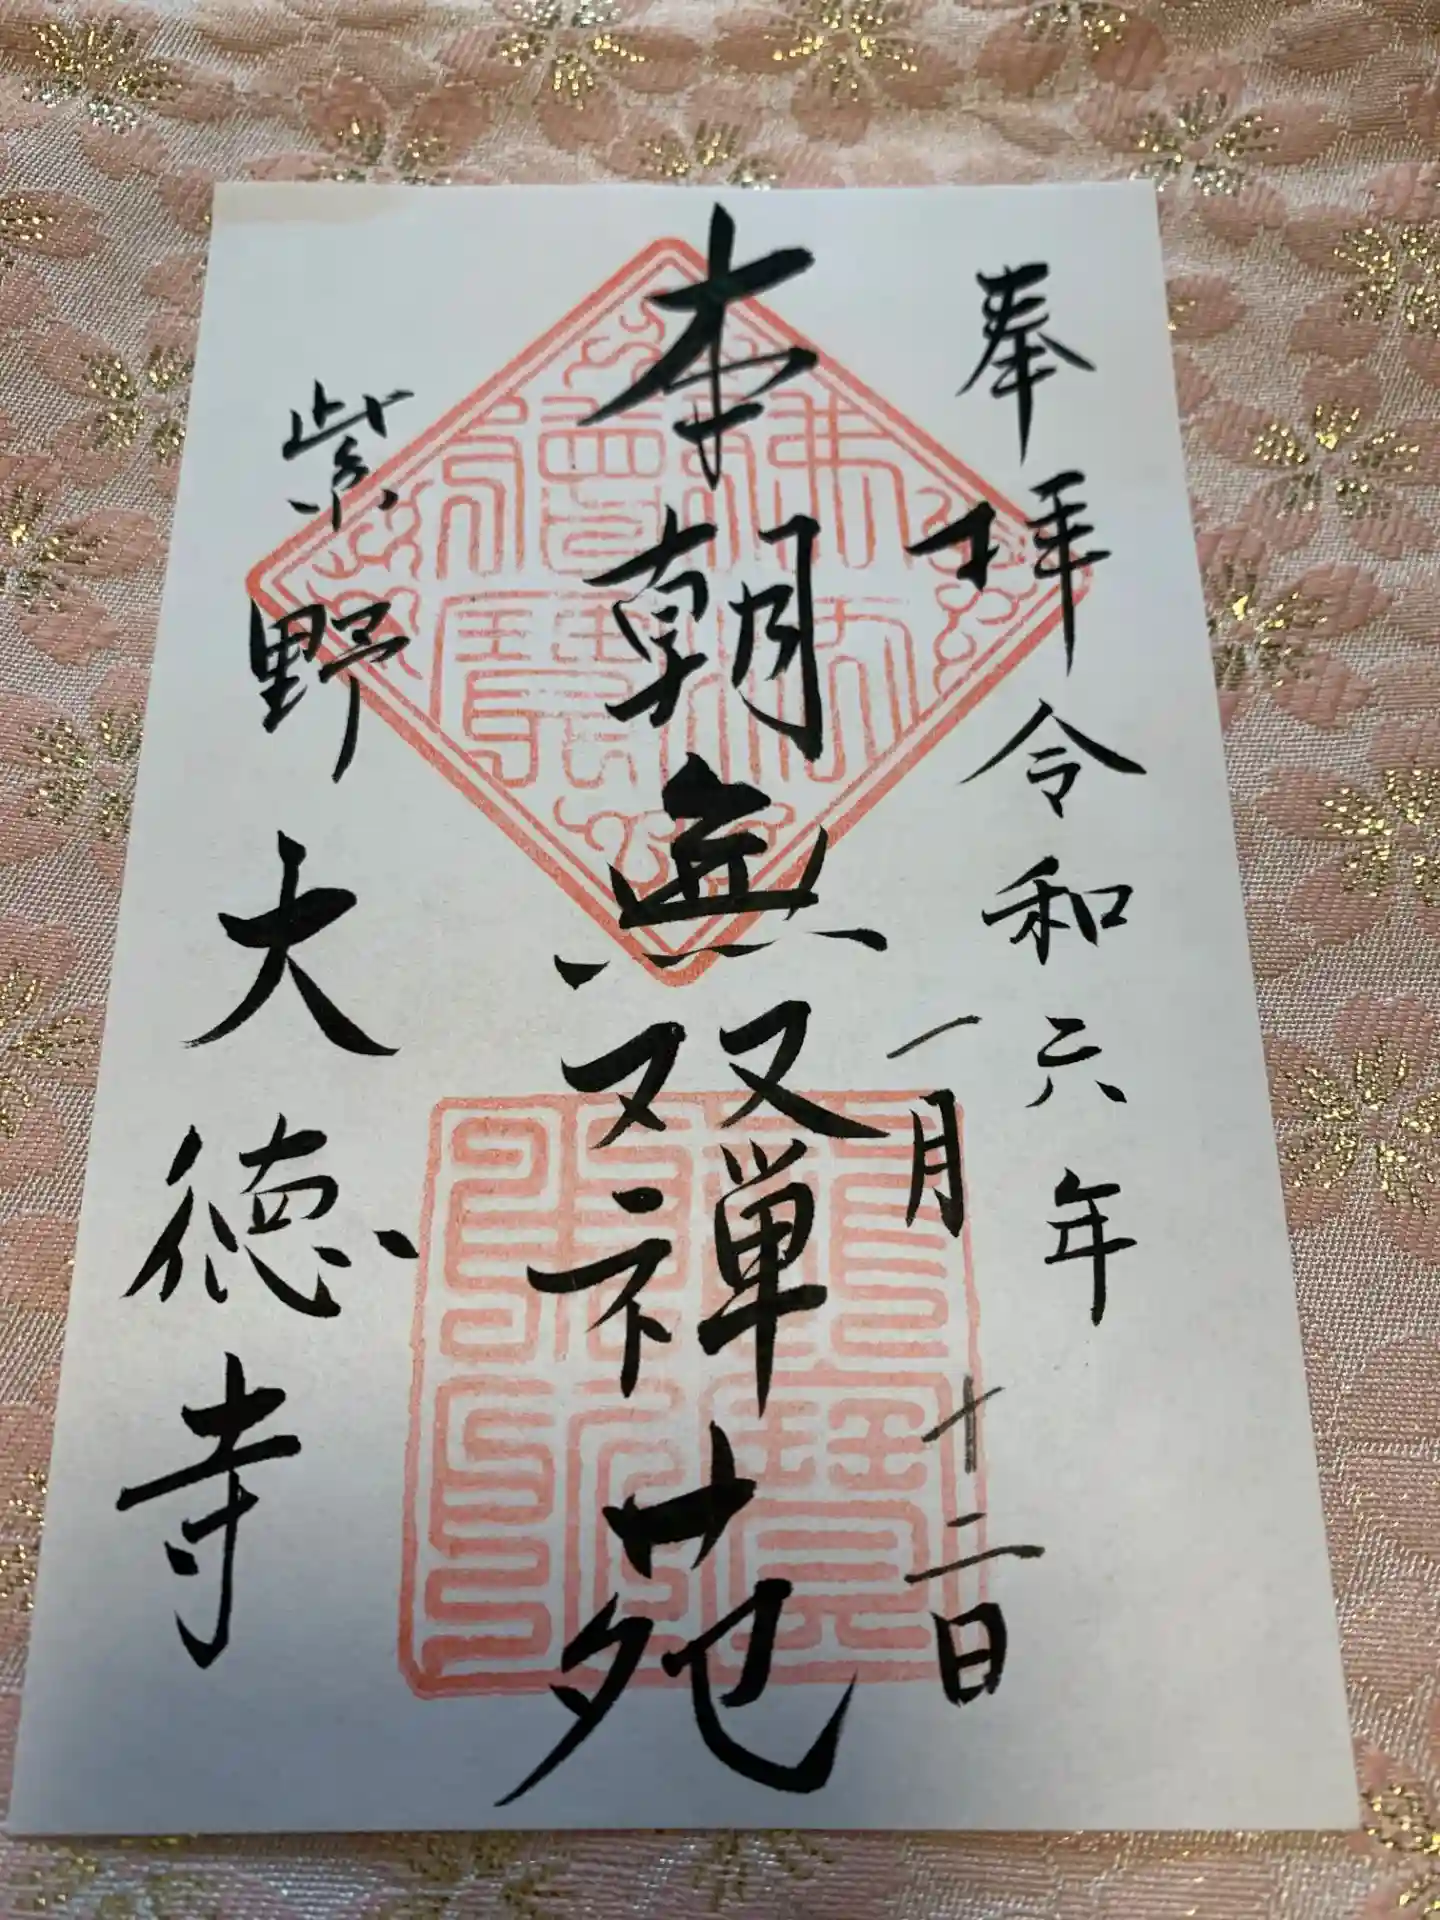 奉拝 令和六年
一月十二日
本朝無双禅苑
紫野 大徳寺